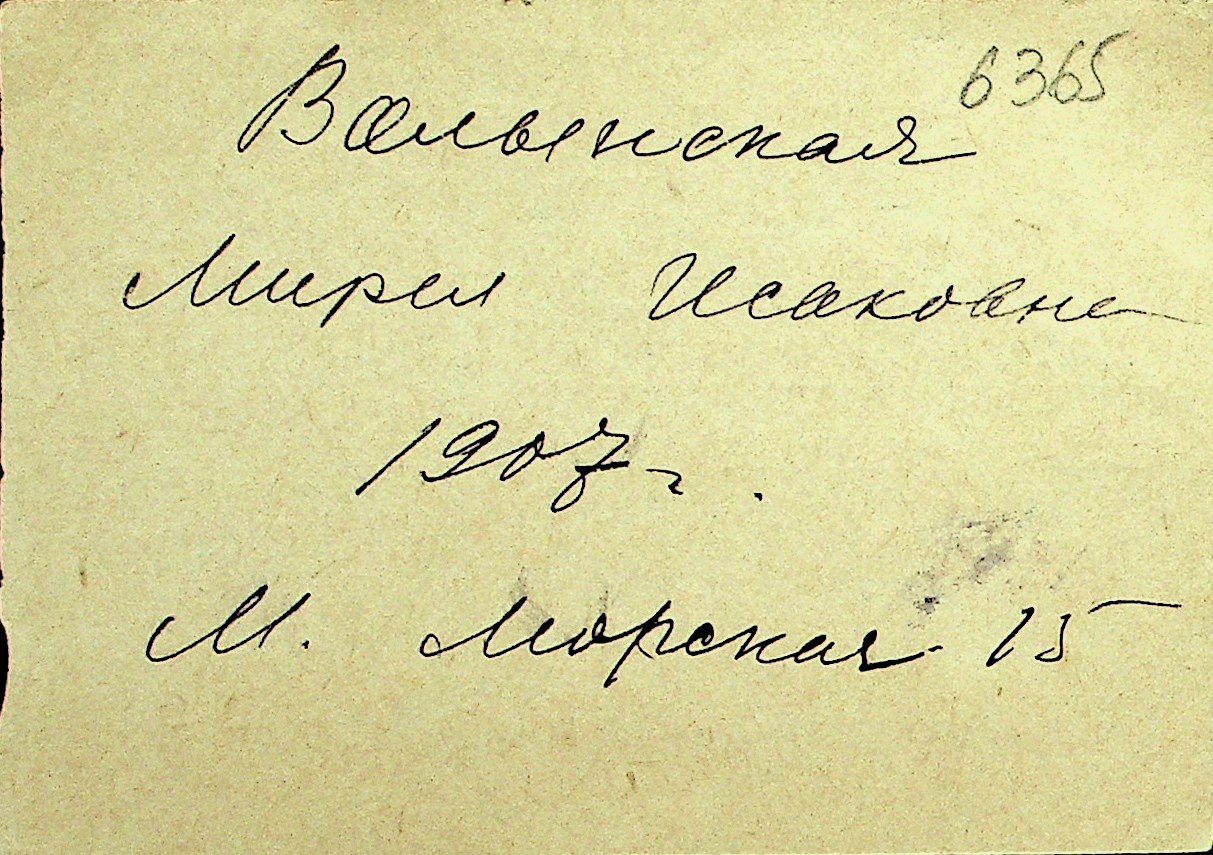 6365
Волынская
Мирел Исаковна
1907 г.
М. Морская 15